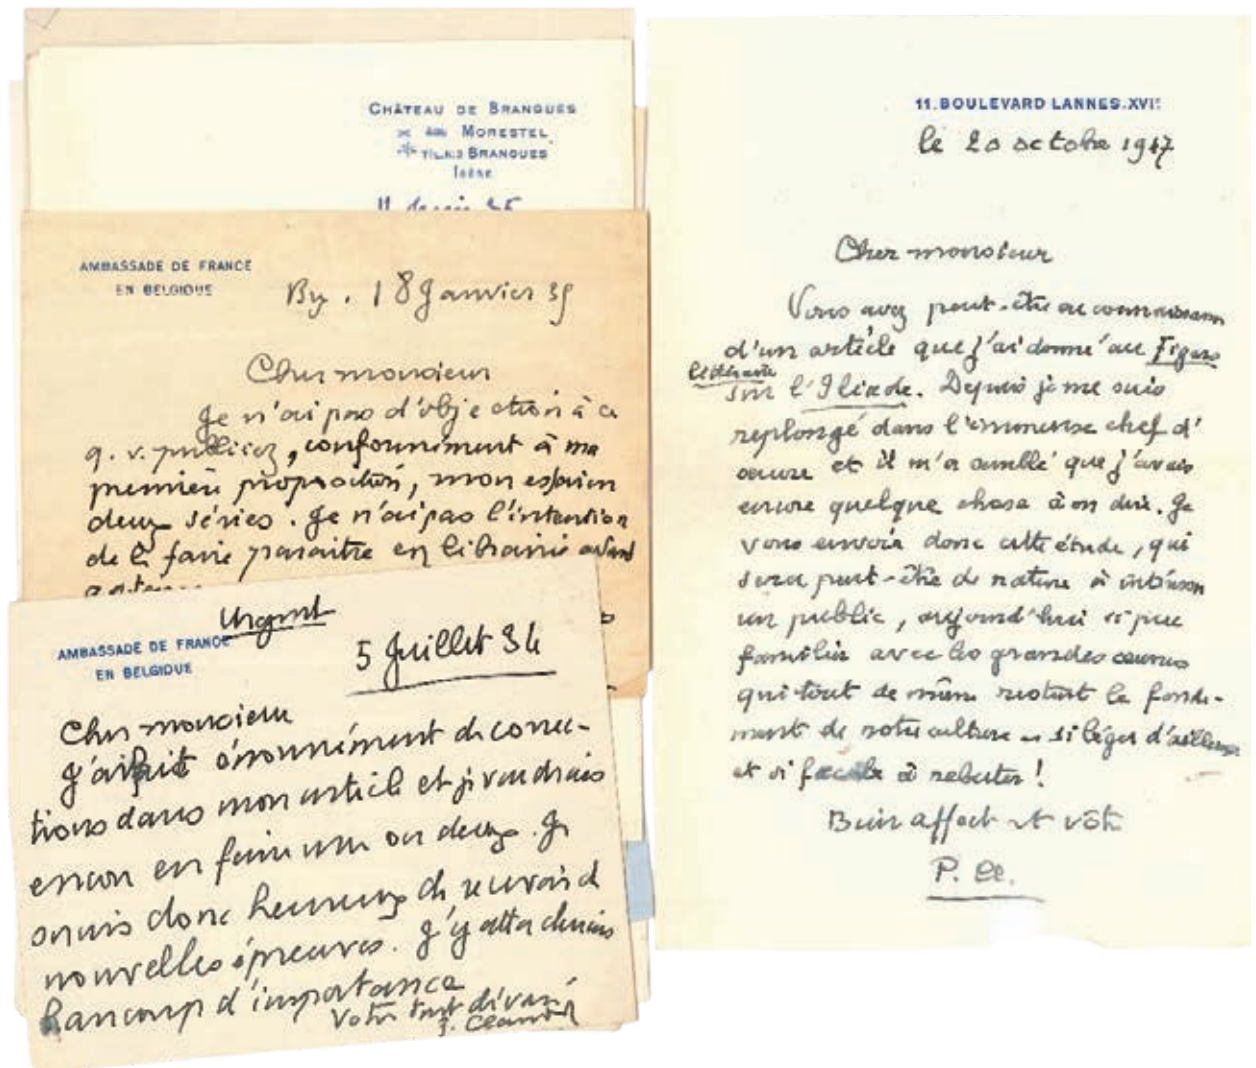 CHÂTEAU DE BRANGUES
MORESTEL
BRANGUES
Isère
AMBASSADE DE FRANCE
EN BELGIQUE
Bx. 18 Janvier 35
Cher monsieur
Je n'ai pas d'objection à ce
q. v. publiiez, conformément à ma
première proposition, mon essai en
deux séries. Je n'ai pas l'intention
de le faire paraître en librairie avant
Urgent
AMBASSADE DE FRANCE
EN BELGIQUE
5 Juillet 34
Cher monsieur
J'ai fait énormément de correc-
tions dans mon article et je voudrais
encore en faire une ou deux. Je
serais donc heureux de recevoir d
nouvelles épreuves. J'y attacherais
beaucoup d'importance
Votre tout dévoué
P. Claudel
11.BOULEVARD LANNES.XVIe
le 20 octobre 1947
Cher monsieur
Vous avez peut-être eu connaissance
d'un article que j'ai donné au Figaro
littéraire
sur l'Iliade. Depuis je me suis
replongé dans l'immense chef d'
œuvre et il m'a semblé que j'avais
encore quelque chose à en dire. Je
vous envoie donc cette étude, qui
sera peut-être de nature à intéresser
un public, aujourd'hui si peu
familier avec les grandes œuvres
qui tout de même restent le fonde-
ment de notre culture – si léger d'ailleurs
et si facile à rebuter !
Bien affect et vôtre
P. Cl.